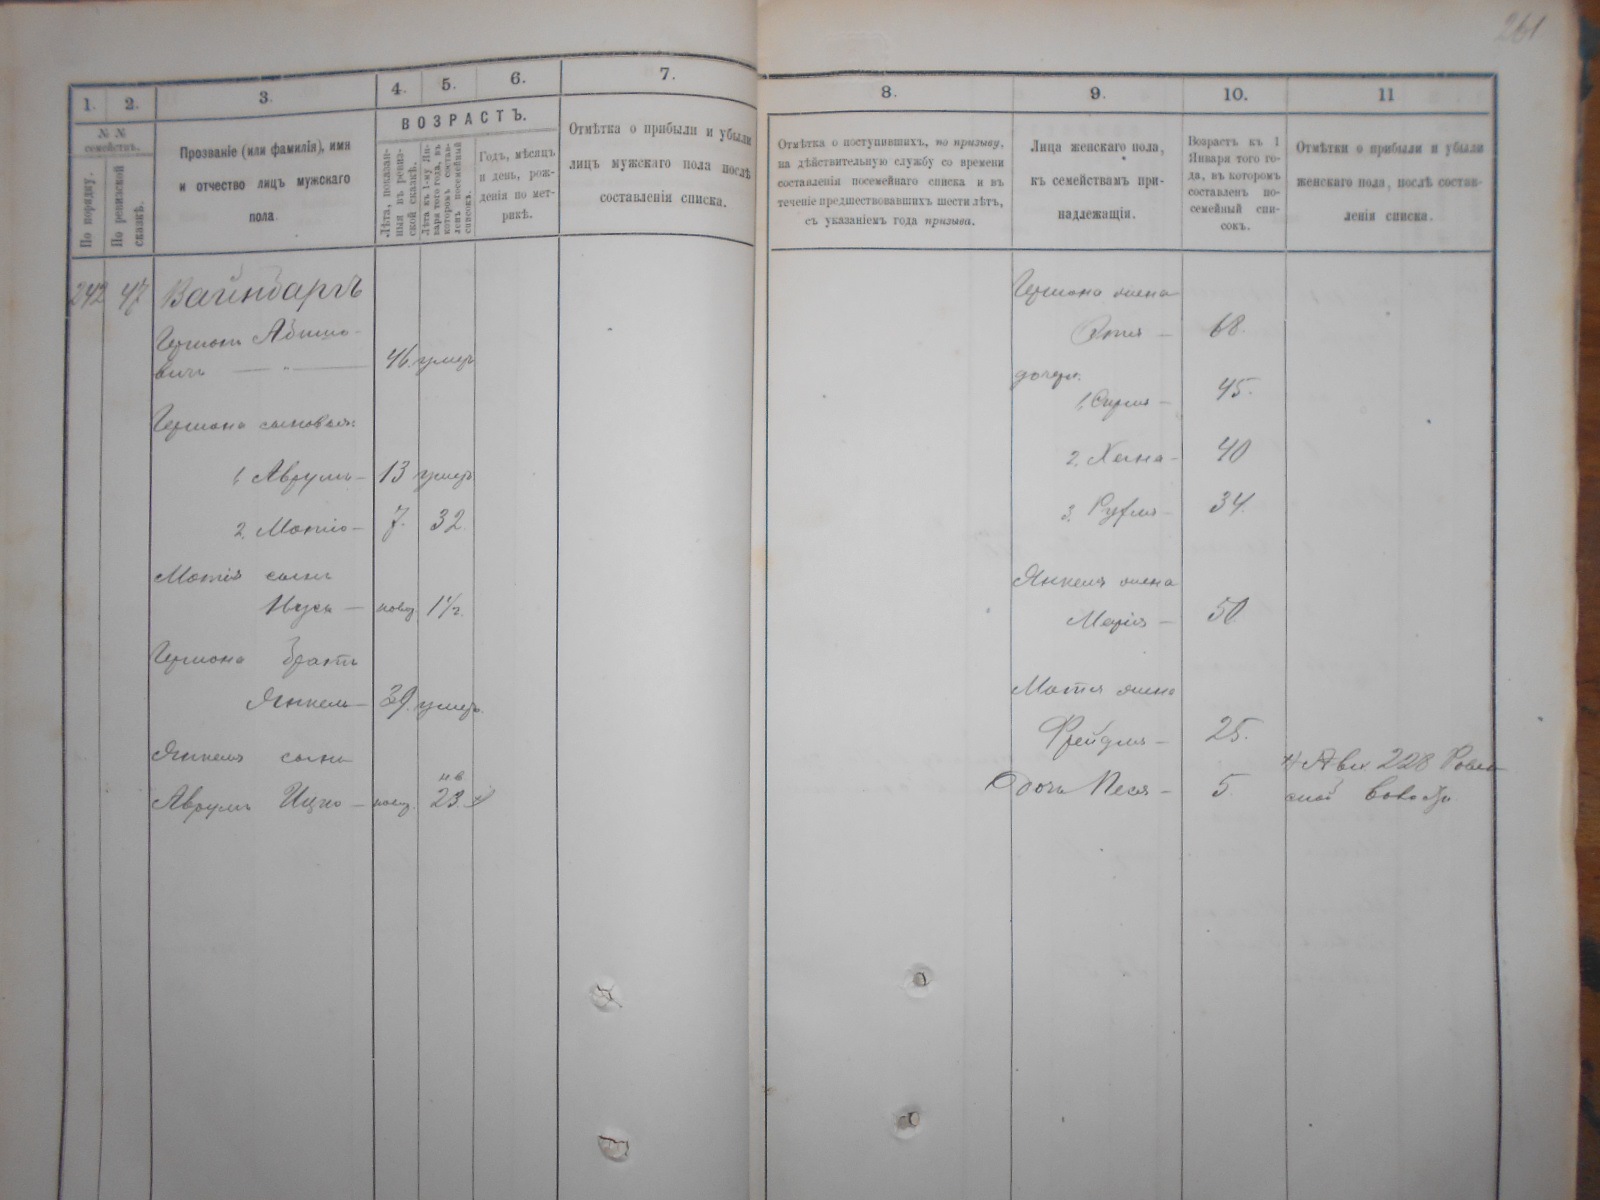 261
1. 2. 3. 4. 5. 6. 7.
№ №
семействъ.
По порядку.
По ревизской
сказкѣ.
Прозваніе (или фамилія), имя
и отчество лицъ мужскаго
пола
ВОЗРАСТЪ.
Лѣта, показан-
ныя въ ревиз-
ской сказкѣ.
Лѣта къ 1-му Ян-
варя того года, въ
которомъ состав-
ленъ посемейный
списокъ.
Годъ, мѣсяцъ
и день, рож-
денія по мет-
рикѣ.
Отмѣтка о прибыли и убыли
лицъ мужскаго пола послѣ
составленія списка.
242 47 Вайнбаргъ
Гершонъ Абрамо-
вичъ — " — 46. умеръ
Гершона сыновья:
1. Аврумъ — 13 умеръ
2. Мотіо — 7. 32.
Мотія сынъ
новор. 1 1/2.
Гершона братъ
Янкель — 39. умеръ.
Янкеля сынъ
Аврумъ Ицко — новор. 23
8. 9. 10. 11
Отмѣтка о поступившихъ, по призыву,
на дѣйствительную службу со времени
составленія посемейнаго списка и въ
теченіе предшествовавшихъ шести лѣтъ,
съ указаніемъ года призыва.
Лица женскаго пола,
къ семействамъ при-
надлежащія.
Возрастъ къ 1
Января того го-
да, въ которомъ
составленъ по-
семейный спи-
сокъ.
Отмѣтки о прибыли и убыли
женскаго пола, послѣ состав-
ленія списка.
Гершона жена
68.
дочери.
1, Сурля — 45.
2, Хана — 40
3, Рухля — 34.
Янкеля жена
Марія — 50
Мотія жена
Фрейдля — 25.
Дочь Песя — 5.
228
ской волости